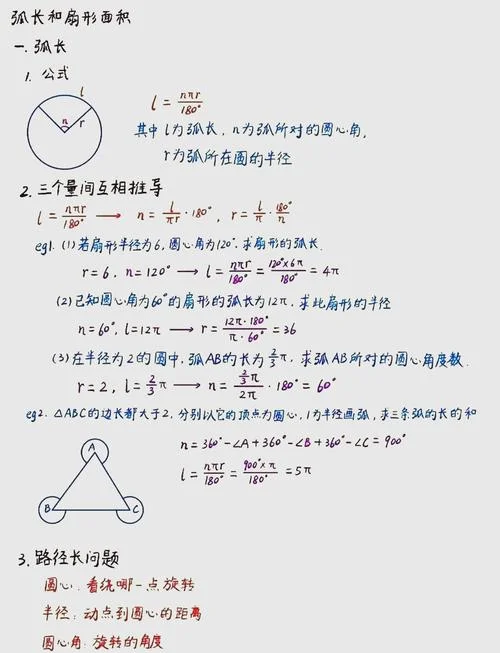 弧长和扇形面积
一.弧长
1. 公式
l
n
r
l = nπr/180°
其中l为弧长, n为弧所对的圆心角,
r为弧所在圆的半径
2. 三个量间互相推导
l = nπr/180° → n = l/πr · 180°, r = l/π · 180°/n
eg1. (1) 若扇形半径为6, 圆心角为120°. 求扇形的弧长.
r = 6, n = 120° → l = nπr/180° = 120°×6π/180° = 4π
(2) 已知圆心角为60°的扇形的弧长为12π, 求此扇形的半径
n = 60°, l = 12π → r = 12π·180°/π·60° = 36
(3) 在半径为2的圆中, 弧AB的长为2/3π, 求弧AB所对的圆心角度数.
r = 2, l = 2/3π → n = 2/3π/2π · 180° = 60°
eg2. △ABC的边长都大于2, 分别以它的顶点为圆心, 1为半径画弧, 求三条弧的长的和
n = 360° - ∠A + 360° - ∠B + 360° - ∠C = 900°
l = nπr/180° = 900°×π/180° = 5π
A
B
C
3. 路径长问题
圆心: 看绕哪一点旋转
半径: 动点到圆心的距离
圆心角: 旋转的角度